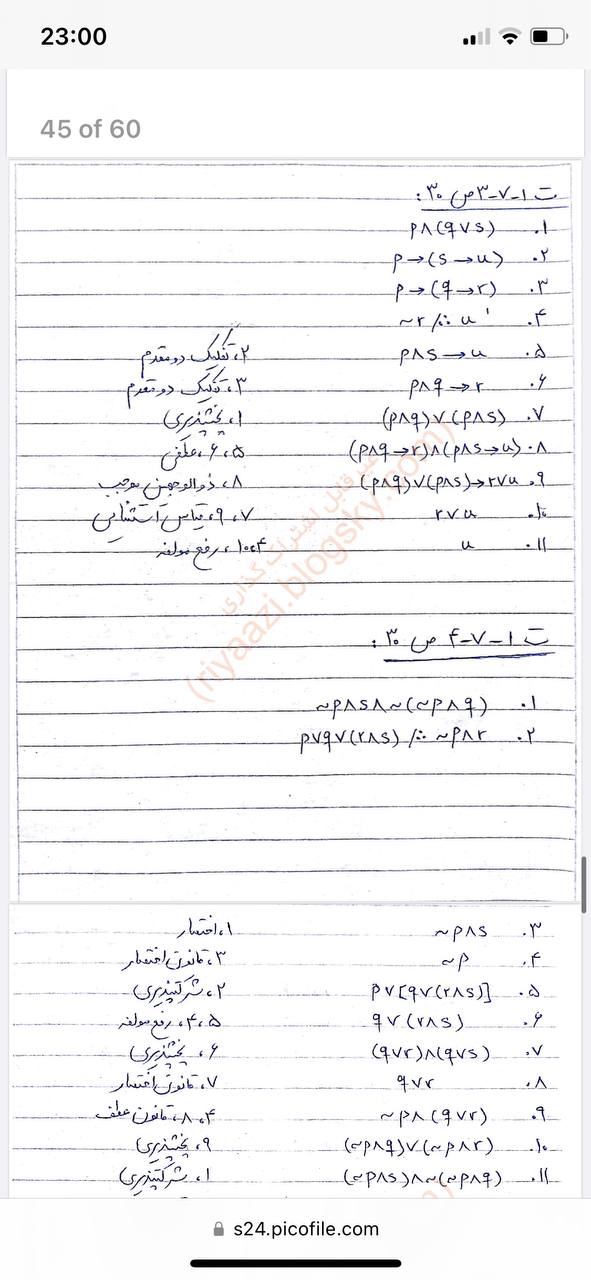 23:00
45 of 60
ت ۱-۷-۳ ص ۳۰:
۱. p∧(q∨s)
۲. p→(s→u)
۳. p→(q→r)
۴. ~r /∴ u
۵. p∧s→u ۲، تفکیک دو مقدم
۶. p∧q→r ۳، تفکیک دو مقدم
۷. (p∧q)∨(p∧s) ۱، پخشپذیری
۸. (p∧q→r)∧(p∧s→u) ۵، ۶، عطف
۹. (p∧q)∨(p∧s)→r∨u ۸، ذوالوجهین موجب
۱۰. r∨u ۷، ۹، قیاس استثنایی
۱۱. u ۴، ۱۰، رفع مولفه
غیر قابل اشتراک گذاری
(riyaazi.blogsky.com)
ت ۱-۷-۴ ص ۳۰:
۱. ~p∧s∧~(~p∧q)
۲. p∨q∨(r∧s) /∴ ~p∧r
۳. ~p∧s ۱، اختصار
۴. ~p ۳، قانون اختصار
۵. p∨[q∨(r∧s)] ۲، شرکتپذیری
۶. q∨(r∧s) ۴، ۵، رفع مولفه
۷. (q∨r)∧(q∨s) ۶، پخشپذیری
۸. q∨r ۷، قانون اختصار
۹. ~p∧(q∨r) ۴، ۸، قانون عطف
۱۰. (~p∧q)∨(~p∧r) ۹، پخشپذیری
۱۱. (~p∧s)∧~(~p∧q) ۱، شرکتپذیری
s24.picofile.com